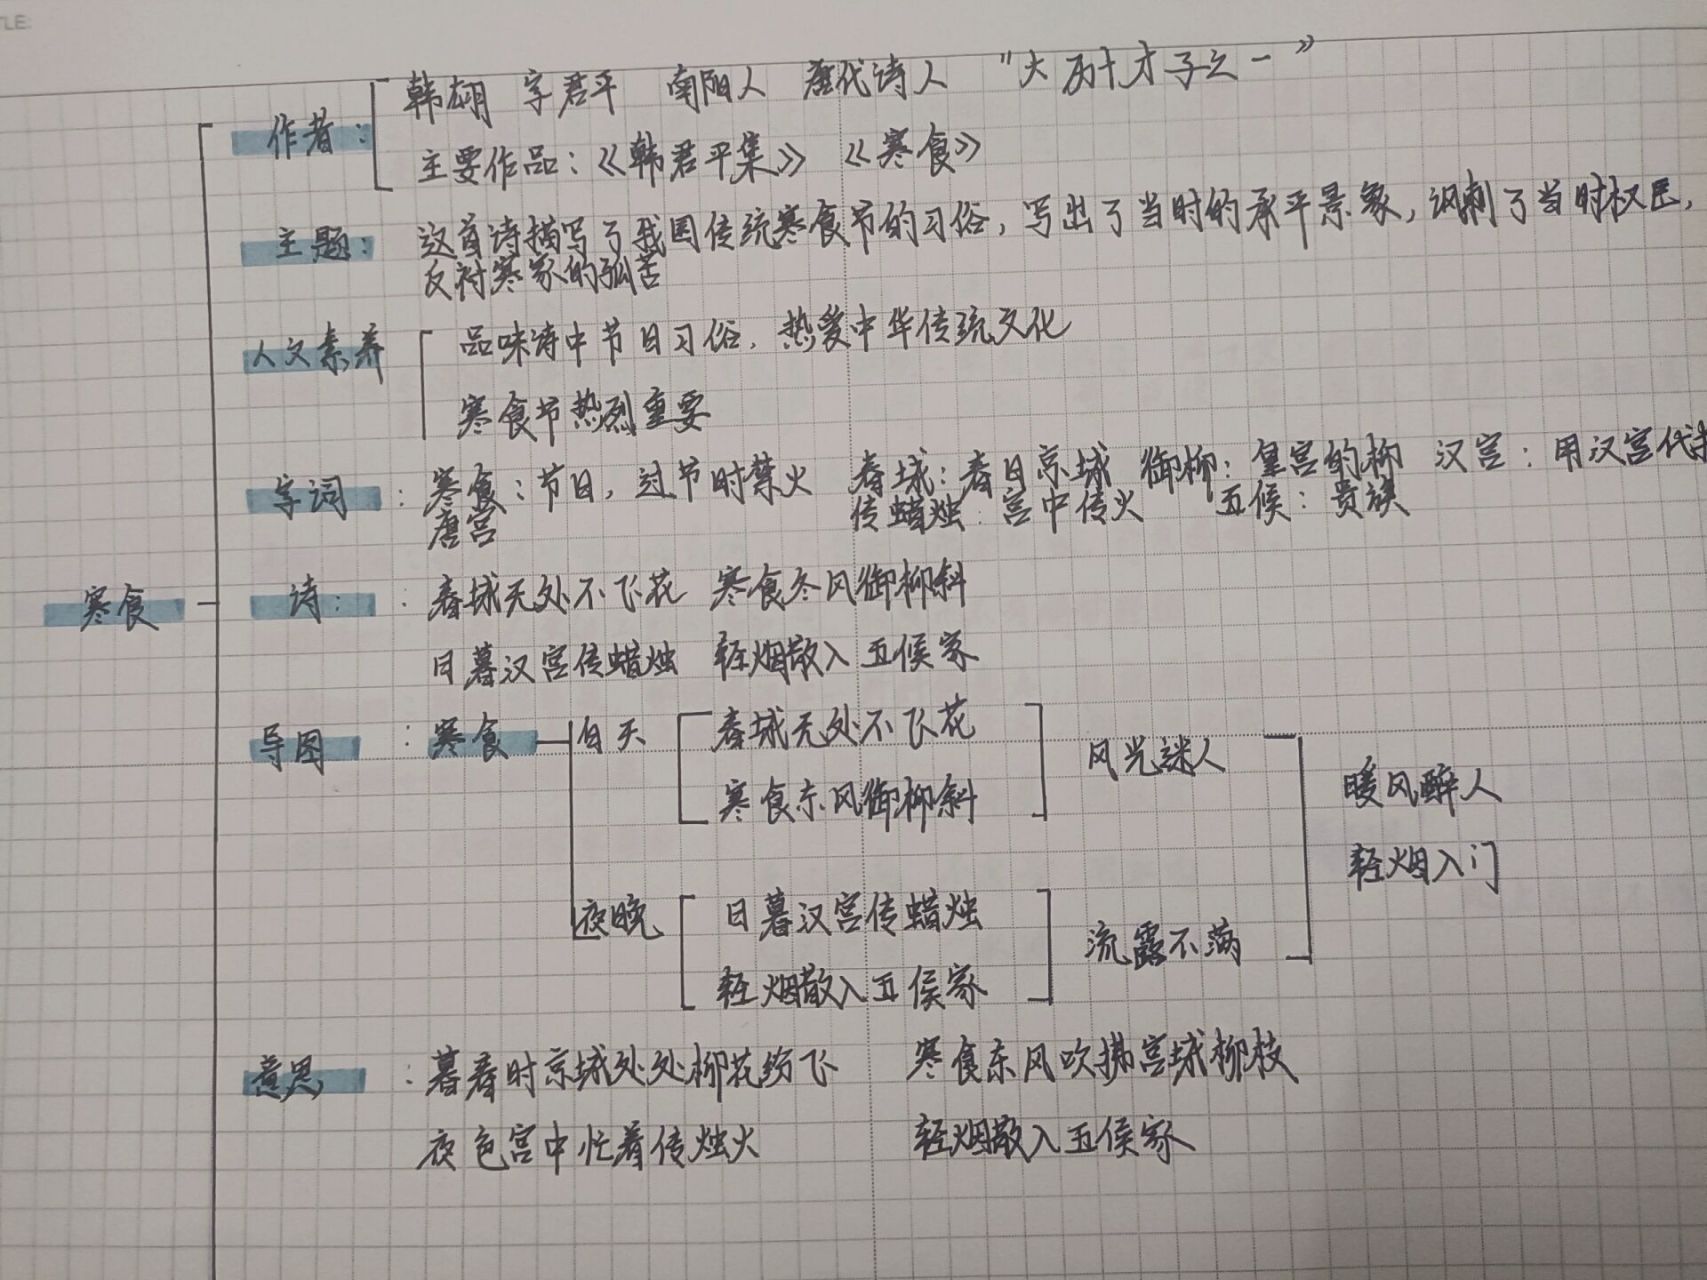 TLE:
韩翃 字君平 南阳人 唐代诗人 "大历十才子之一"
作者:
主要作品:《韩君平集》《寒食》
主题: 这首诗描写了我国传统寒食节的习俗,写出了当时的承平景象,讽刺了当时权臣,
反衬寒家的孤苦
人文素养 品味诗中节日习俗,热爱中华传统文化
寒食节热烈重要
字词: 寒食:节日,过节时禁火 春城:春日京城 御柳:皇宫的柳 汉宫:用汉宫代
唐宫 传蜡烛:宫中传火 五候:贵族
寒食 诗: 春城无处不飞花 寒食冬风御柳斜
日暮汉宫传蜡烛 轻烟散入五候家
导图: 寒食 白天 春城无处不飞花
风光谜人
寒食东风御柳斜
暖风醉人
轻烟入门
夜晚 日暮汉宫传蜡烛
流露不满
轻烟散入五侯家
意思: 暮春时京城处处柳花纷飞 寒食东风吹拂宫城柳枝
夜色宫中忙着传烛火 轻烟散入五侯家